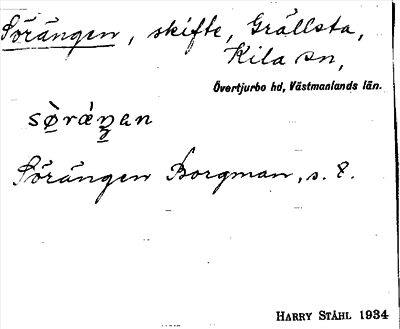 Sörängen, skifte, Grällsta,
Kila sn,
Övertjurbo hd, Västmanlands län.
sø̀ræ̀ŋan
Sörängen Borgman, s. 8.
HARRY STÅHL 1934